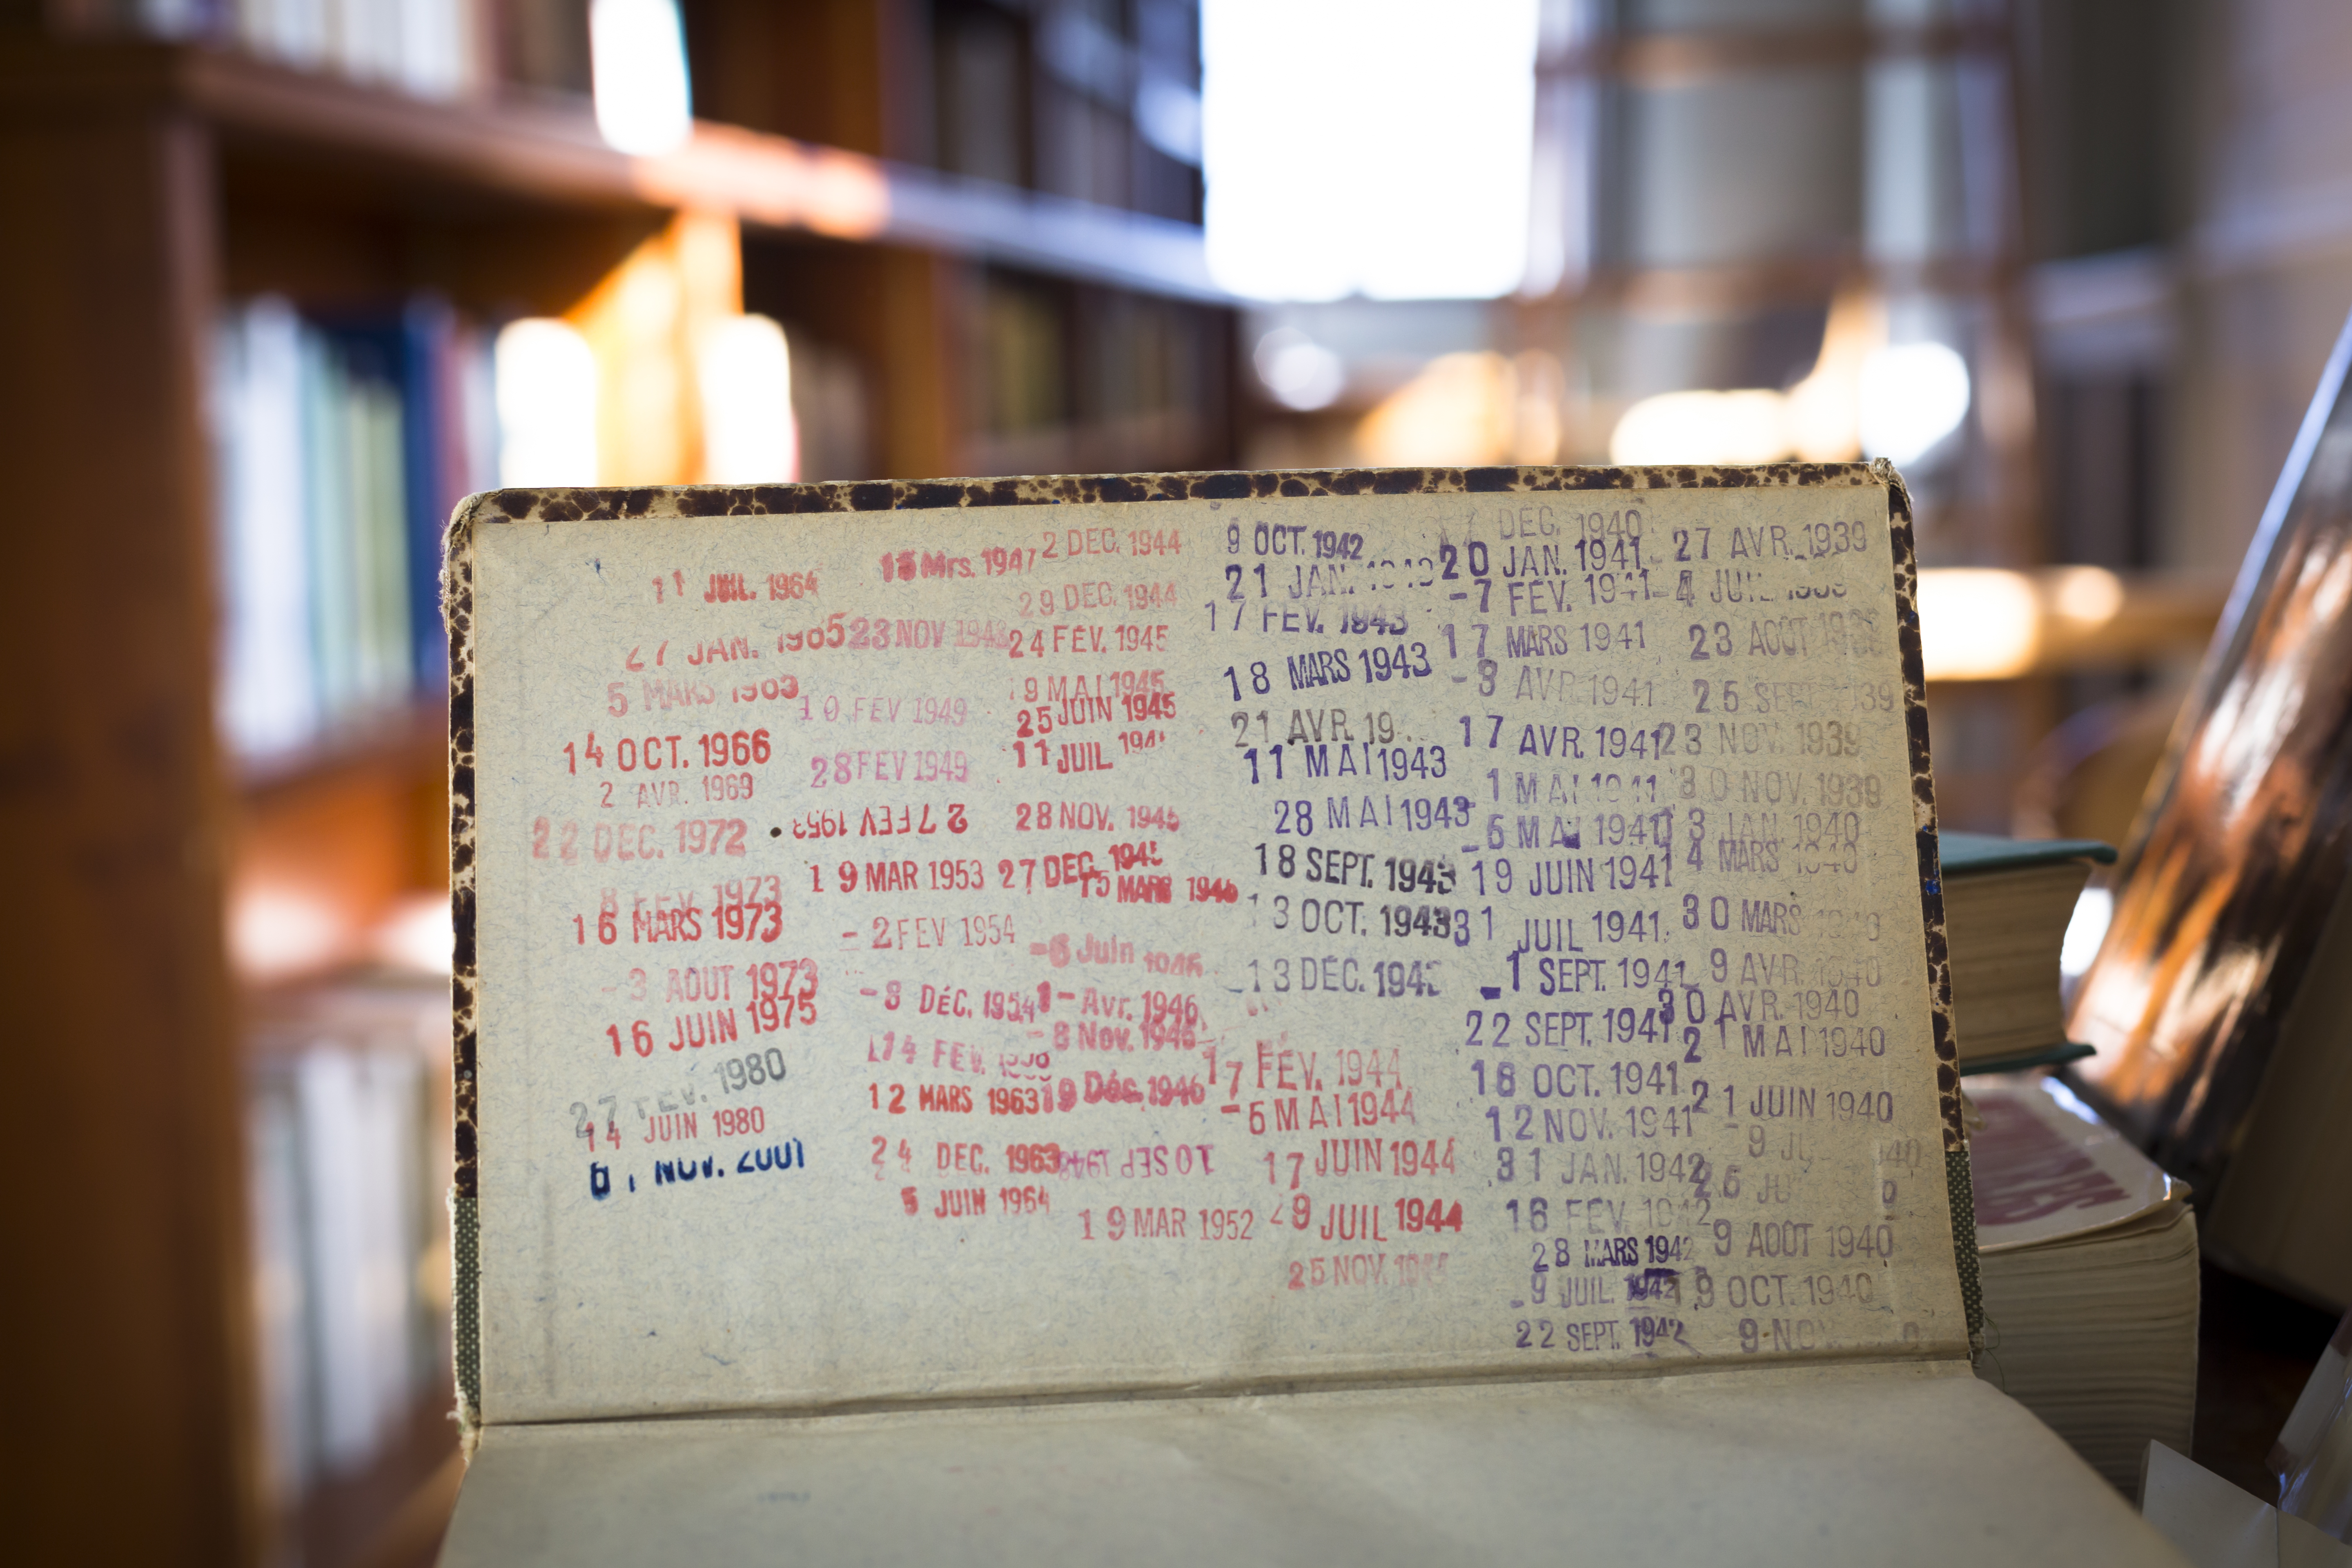 11 JUIL. 1964
27 JAN. 1965
5 MARS
14 OCT. 1966
2 AVR. 1969
22 DEC. 1972
8 FEV. 1973
16 MARS 1973
-3 AOUT 1973
16 JUIN 1975
27 FEV. 1980
14 JUIN 1980
NOV. 2001
Mrs. 1947
23 NOV 1948
10 FEV 1949
28 FEV 1949
27 FEV 1953
19 MAR 1953
-2 FEV 1954
-8 DÉC. 1954
14 FEV.
12 MARS 1963
24 DEC. 1963
5 JUIN 1964
2 DEC. 1944
29 DEC. 1944
24 FÉV. 1945
9 MAI 1945
25 JUIN 1945
11 JUIL
28 NOV. 1945
27 DEC. 1945
15 MARS 1946
-6 Juin 1946
1- Avr. 1946
-8 Nov. 1946
19 Déc. 1946
10 SEP 1948
19 MAR 1952
9 OCT. 1942
21 JAN.
17 FEV. 1943
18 MARS 1943
21 AVR. 19
11 MAI 1943
28 MAI 1943
18 SEPT. 1943
13 OCT. 1943
13 DÉC. 194
17 FÉV. 1944
-6 MAI 1944
17 JUIN 1944
29 JUIL 1944
25 NOV. 1944
DEC. 1940
20 JAN. 1941
-7 FEV. 1941
17 MARS 1941
-8 AVR 1941
17 AVR. 1941
1 MAI 1941
-6 MAI 1941
19 JUIN 1941
31 JUIL 1941
-1 SEPT. 1941
22 SEPT. 1941
16 OCT. 1941
12 NOV. 1941
31 JAN. 1942
16 FEV. 1942
28 MARS 1942
-9 JUIL. 1942
22 SEPT. 1942
27 AVR. 1939
-4 JUIL
23 AOÛT
25 SEPT 1939
23 NOV. 1939
30 NOV. 1939
13 JAN. 1940
4 MARS 1940
30 MARS
9 AVR. 1940
30 AVR. 1940
21 MAI 1940
21 JUIN 1940
-9 JU 40
26 JU
9 AOÛT 1940
19 OCT. 1940
9 NOV